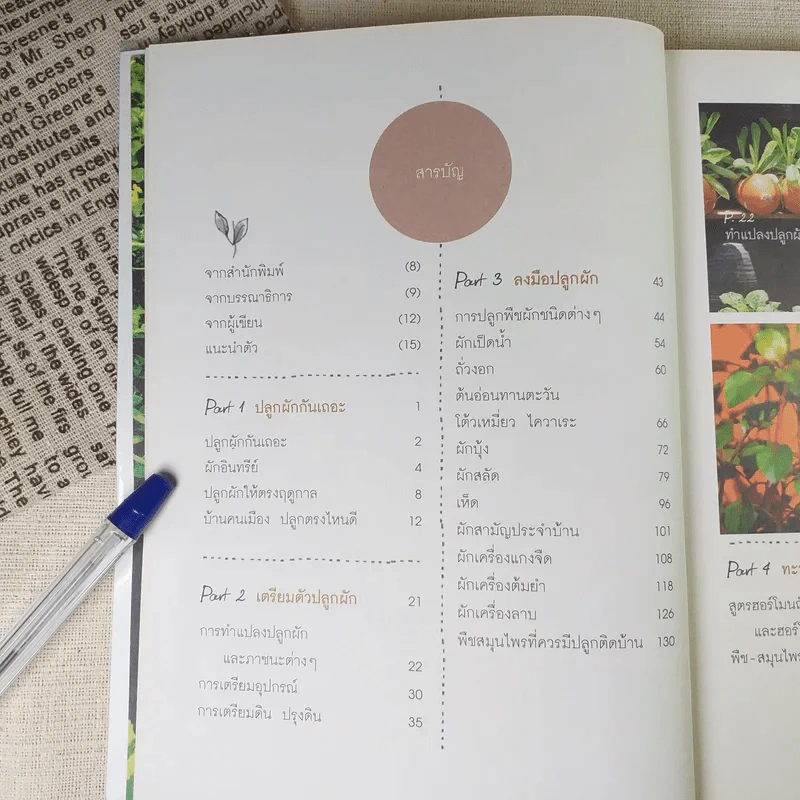 สารบัญ
จากสำนักพิมพ์ (8)
จากบรรณาธิการ (9)
จากผู้เขียน (12)
แนะนำตัว (15)
Part 1 ปลูกผักกันเถอะ 1
ปลูกผักกันเถอะ 2
ผักอินทรีย์ 4
ปลูกผักให้ตรงฤดูกาล 8
บ้านคนเมือง ปลูกตรงไหนดี 12
Part 2 เตรียมตัวปลูกผัก 21
การทำแปลงปลูกผัก
และภาชนะต่างๆ 22
การเตรียมอุปกรณ์ 30
การเตรียมดิน ปรุงดิน 35
Part 3 ลงมือปลูกผัก 43
การปลูกพืชผักชนิดต่างๆ 44
ผักเป็ดน้ำ 54
ถั่วงอก 60
ต้นอ่อนทานตะวัน
โต้วเหมี่ยว ไควาเระ 66
ผักบุ้ง 72
ผักสลัด 79
เห็ด 96
ผักสามัญประจำบ้าน 101
ผักเครื่องแกงจืด 108
ผักเครื่องต้มยำ 118
ผักเครื่องลาบ 126
พืชสมุนไพรที่ควรมีปลูกติดบ้าน 130
P. 22
ทำแปลงปลูก
Part 4
สูตรฮอร์โมน
พืช-สมุนไพร
Greene's
at Mr. Sherry
ve acess to
or's pabers
ght Greene's
prostitutes and
xual pursuits
in the
cricics in